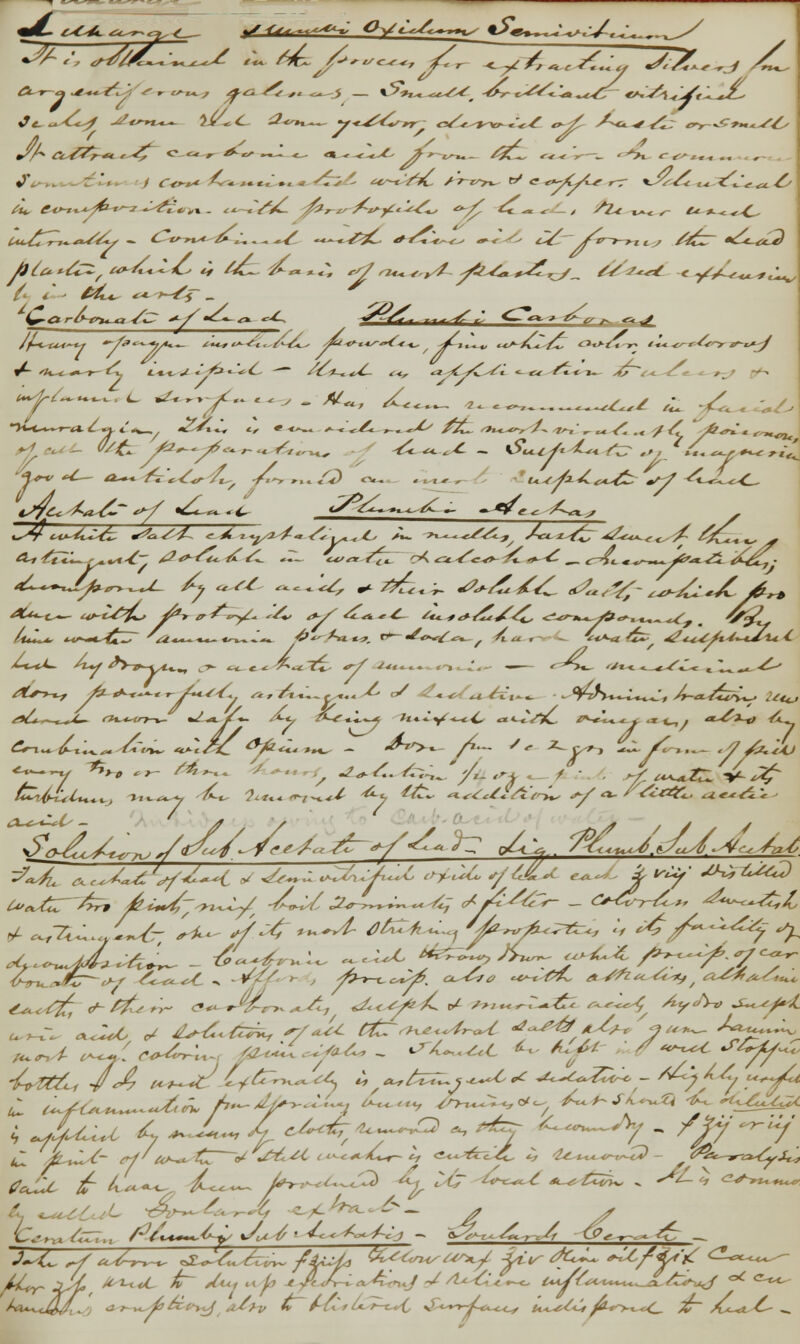 Litharge Plumbi Oxidum Semivitrium
It is obtained in the process for extracting Silvers fm
argentiferous galenas, - Small, brilliant vitrified
scales, some red some yellow, devoid of taste or smell
It attracts carbonic acid from the air - In commerce
Sometimes contaminated with iron & copper. Identical
in composition - with protoxide of lead, Never used
internally - Combined with olive oil it forms the Lead
plaster, which is the basis of most plasters - Used extensive
ly in the arts -
Carbonate of Lead Plumbi Carbonas
Heavy opaque insoluble powder, fine white color, inodorous
& nearly insipid - Used as application to ulcers &
inflamed surfaces - Has been recommended in facial
neuralgia, This is considered the most virulently poisonous
of all the preparations of lead - Sulphate of magnesia
good antidote, formed an inert Sulphate of lead
Acetate of Lead Plumbi Acetas
A white salt chrystalized in needles, taste sweet, then
astringent, soluble in water & alcohol - Incompatibles;
decomposed by all acids & their soluble salts, which pro
duce with protoxide of lead insoluble compounds. By
lime water ammonia potass. & soda, hard water, sulphuret
ted hydrogen & acetate of ammonia - In medicinal
doses powerfully astringent & sedative - Administration, ren
dered more safe by being mixed with vinegar, also by
combination with Opium - Dose fm 1 to 2 grs in form of pill
every two or three hours, solution 1/4 oz a pint of water & its
turbidness may be removed by the addition of a little acetic
acid - Turbidness owing to Carb. acid of water -
Solution of Sub. Acetate of Lead - Liq. Plumb. Sub. Acetat.
Take acetate of lead & semivitrified oxide of lead each ℥ viij Distilled
water two pints, mix, boil 20 minutes & filter - colorless sweetish
& astringent, one of its most striking properties is its facility of
decomposition - Carbonic acid throws down white precip. of car
bonate of lead - Affords precip. also with alkalies, alkaline
earths & their carbonates, sulph & muriatic acids, hydro sulph
uric acid, & solutions of all the neutral salts also gum tannin
most veg. coloring principles - Should be kept in well stopped
bottles & Is used externally is astringent & sedative - Highly useful
in inflammation fm sprains burns bruises &c, but should be diluted
is applied by means of cloths, removed as they become dry - f ʒij or iij
in pint of water & still weaker is cuticle is removed - Paralysis
said to have been produced by its local action - It is common
ly called Goulards extract -
Ceratum Plumbi Sub Acetatis - Goulards Cerate -
Take of above solution f℥ijss Yellow wax ℥iv Olive oil f℥ix Cam
phor ʒss, used to dry up excoriations & relieve inflammations & cu
taneous eruptions, also to blistered surfaces indisposed to heal -